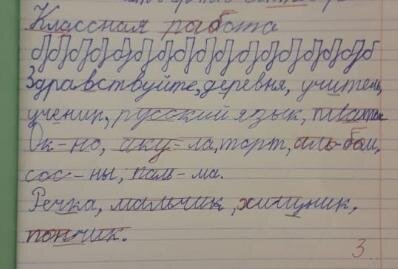 Классная работа
Здравствуйте, деревня, учитель,
ученик, русский язык, платок
Ок-но, аку-ла, торт, аль-бом,
сос-ны, паль-ма.
Речка, мальчик, хищник,
пончик.
3